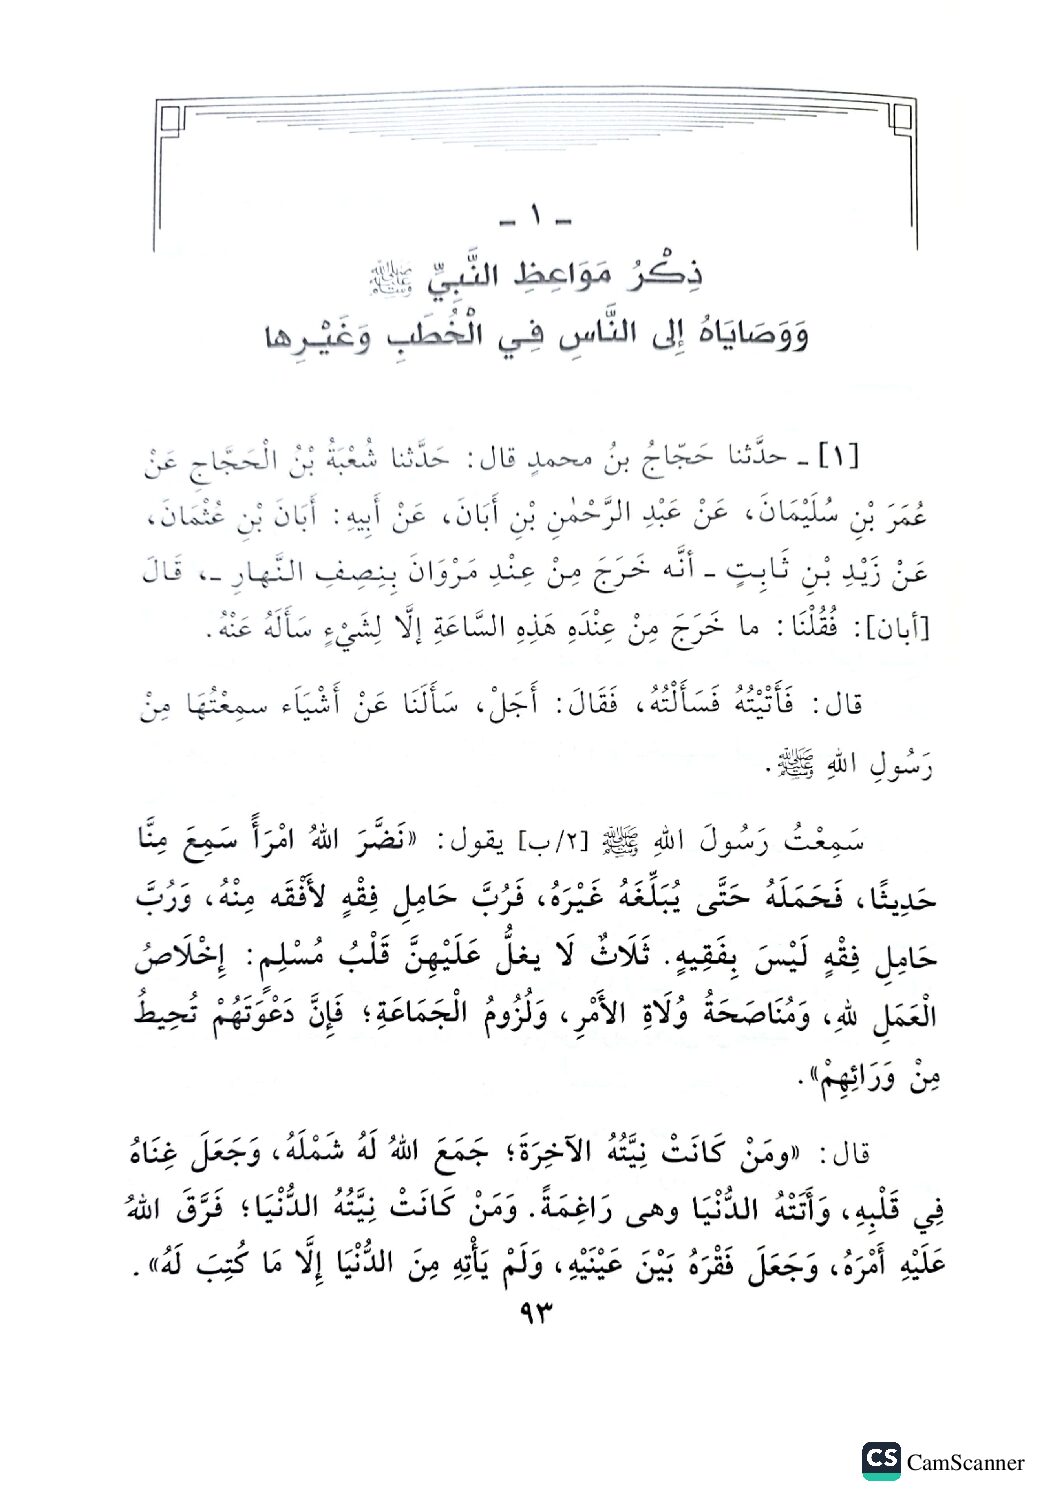 ـ ١ ـ
ذِكْرُ مَوَاعِظِ النَّبِيِّ ﷺ
وَوَصَايَاهُ إِلى النَّاسِ فِي الْخُطَبِ وَغَيْرِها
[١] ـ حدَّثنا حَجّاجُ بنُ محمدٍ قال: حَدَّثنا شُعْبَةُ بْنُ الْحَجَّاجِ عَنْ
عُمَرَ بْنِ سُلَيْمَانَ، عَنْ عَبْدِ الرَّحْمٰنِ بْنِ أَبَانَ، عَنْ أَبِيهِ: أَبَانَ بْنِ عُثْمَانَ،
عَنْ زَيْدِ بْنِ ثَابِتٍ ـ أنَّه خَرَجَ مِنْ عِنْدِ مَرْوَانَ بِنِصِفِ النَّهارِ ـ، قَالَ
[أبان]: فُقُلْنَا: ما خَرَجَ مِنْ عِنْدَهِ هَذِهِ السَّاعَةِ إلَّا لِشَيْءٍ سَأَلَهُ عَنْهُ.
قال: فَأَتَيْتُهُ فَسَأَلْتُهُ، فَقَالَ: أَجَلْ، سَأَلَنَا عَنْ أَشْيَاَء سمِعْتُهَا مِنْ
رَسُولِ اللهِ ﷺ.
سَمِعْتُ رَسُولَ اللهِ ﷺ [٢/ب] يقول: «نَضَّرَ اللهُ امْرَأً سَمِعَ مِنَّا
حَدِيثًا، فَحَمَلَهُ حَتَّى يُبَلِّغَهُ غَيْرَهُ، فَرُبَّ حَامِلِ فِقْهٍ لأَفْقَه مِنْهُ، وَرُبَّ
حَامِلِ فِقْهٍ لَيْسَ بِفَقِيهٍ. ثَلَاثٌ لَا يغلُّ عَلَيْهِنَّ قَلْبُ مُسْلِمٍ: إِخْلَاصُ
الْعَمَلِ للهِ، وَمُنَاصَحَةُ وُلَاةِ الأَمْرِ، وَلُزُومُ الْجَمَاعَةِ؛ فَإِنَّ دَعْوَتَهُمْ تُحِيطُ
مِنْ وَرَائِهِمْ».
قال: «ومَنْ كَانَتْ نِيَّتُهُ الآخِرَةَ؛ جَمَعَ اللهُ لَهُ شَمْلَهُ، وَجَعَلَ غِنَاهُ
فِي قَلْبِهِ، وَأَتَتْهُ الدُّنْيَا وهى رَاغِمَةً. وَمَنْ كَانَتْ نِيَّتُهُ الدُّنْيَا؛ فَرَّقَ اللهُ
عَلَيْهِ أَمْرَهُ، وَجَعَلَ فَقْرَهُ بَيْنَ عَيْنَيْهِ، وَلَمْ يَأْتِهِ مِنَ الدُّنْيَا إِلَّا مَا كُتِبَ لَهُ».
٩٣
CS CamScanner